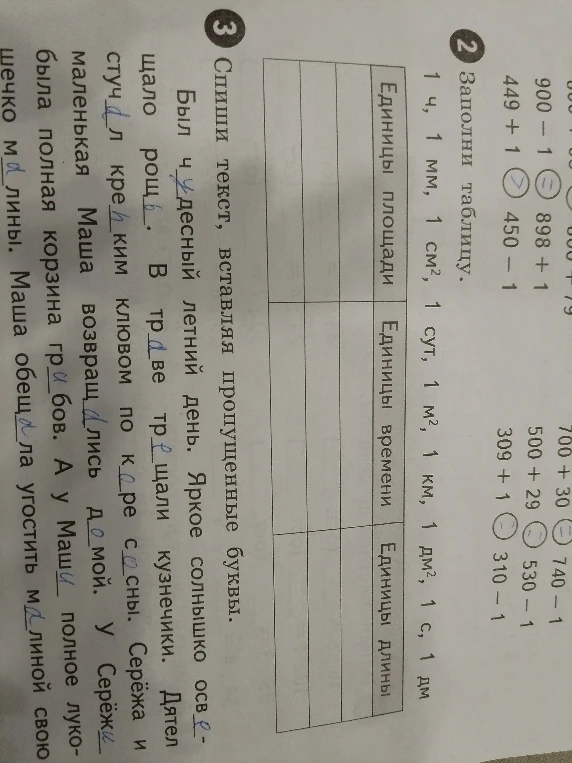 700 + 30 = 740 − 1
900 − 1 = 898 + 1 500 + 29 = 530 − 1
449 + 1 > 450 − 1 309 + 1 = 310 − 1
2 Заполни таблицу.
1 ч, 1 мм, 1 см², 1 сут, 1 м², 1 км, 1 дм², 1 с, 1 дм
Единицы площади Единицы времени Единицы длины
3 Спиши текст, вставляя пропущенные буквы.
Был чудесный летний день. Яркое солнышко осве-
щало . В траве трещали кузнечики. Дятел
стучал крепким клювом по коре сосны. Серёжа и
маленькая Маша возвращались домой. У Серёжи
была полная корзина грибов. А у Маши полное луко-
шечко малины. Маша обещала угостить малиной свою